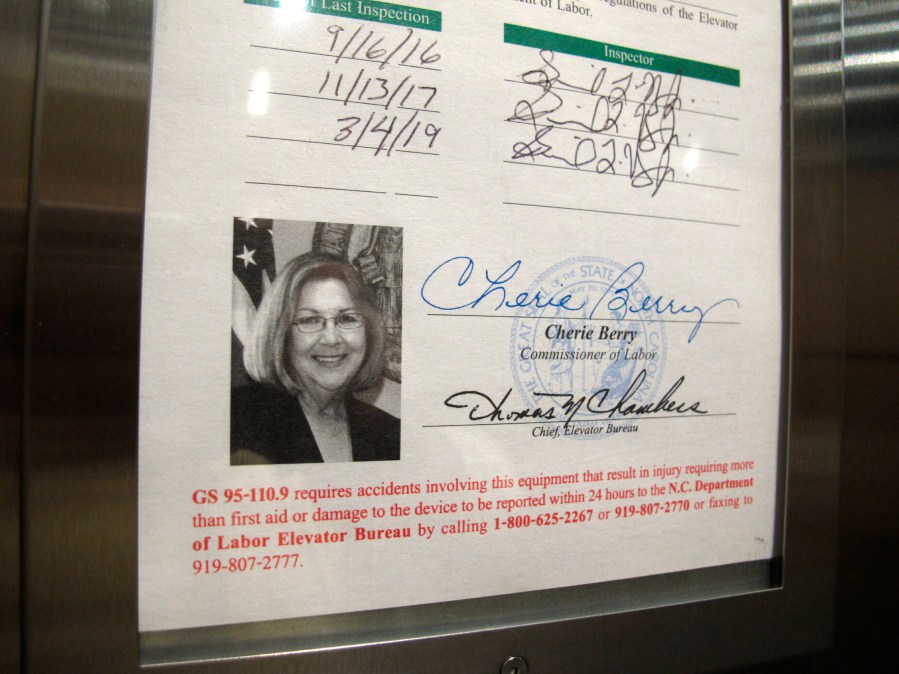 of Last Inspection
ulations of the Elevator
of Labor,
Inspector
9/16/16
11/13/17
3/4/19
THE GREAT SEAL OF THE STATE OF NORTH CAROLINA
MAY 20, 17
Cherie Berry
Cherie Berry
Commissioner of Labor
Thomas M Chambers
Chief, Elevator Bureau
GS 95-110.9 requires accidents involving this equipment that result in injury requiring more
than first aid or damage to the device to be reported within 24 hours to the N.C. Department
of Labor Elevator Bureau by calling 1-800-625-2267 or 919-807-2770 or faxing to
919-807-2777.